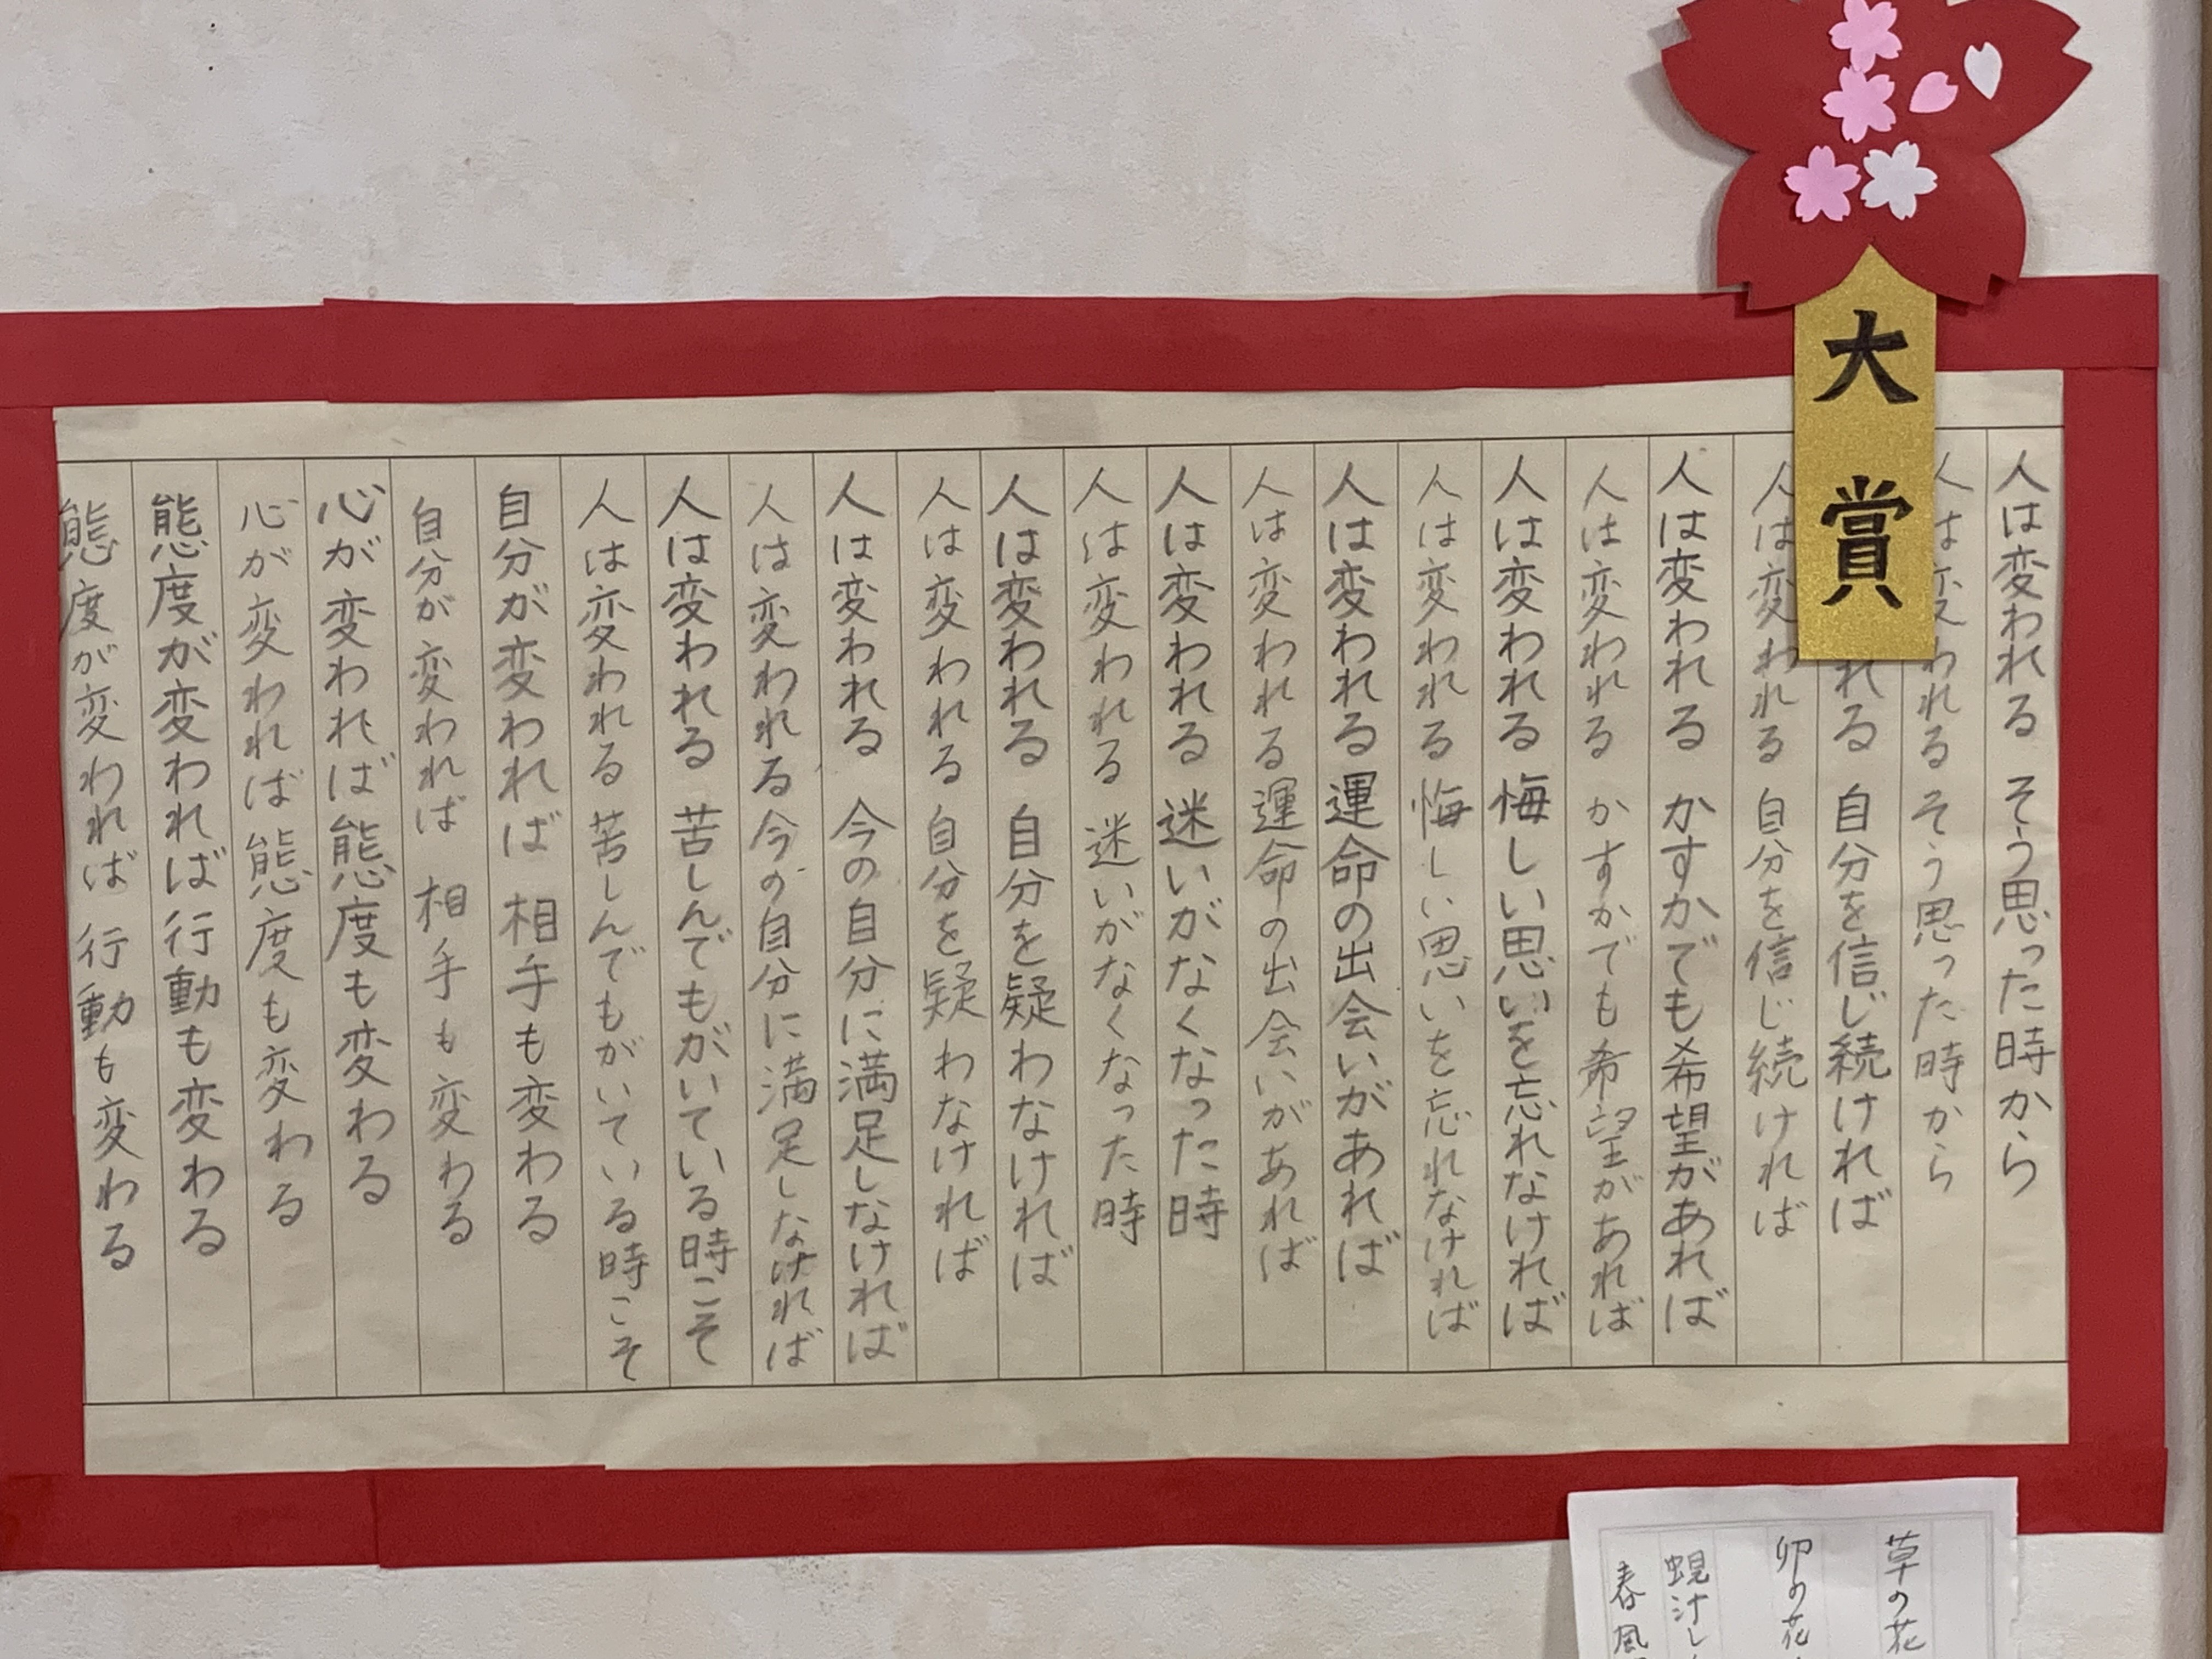 大賞
人は変われる そう思った時から
人は変われる そう思った時から
れる 自分を信じ続ければ
人は変われる 自分を信じ続ければ
人は変われる かすかでも希望があれば
人は変われる かすかでも希望があれば
人は変われる 悔しい思いを忘れなければ
人は変われる 悔しい思いを忘れなければ
人は変われる 運命の出会いがあれば
人は変われる 運命の出会いがあれば
人は変われる 迷いがなくなった時
人は変われる 迷いがなくなった時
人は変われる 自分を疑わなければ
人は変われる 自分を疑わなければ
人は変われる 今の自分に満足しなければ
人は変われる 今の自分に満足しなければ
人は変われる 苦しんでもがいている時こそ
人は変われる 苦しんでもがいている時こそ
自分が変われば 相手も変わる
自分が変われば 相手も変わる
心が変われば 態度も変わる
心が変われば 態度も変わる
態度が変われば 行動も変わる
態度が変われば 行動も変わる
草の花
卯の花
蜆汁し
春風